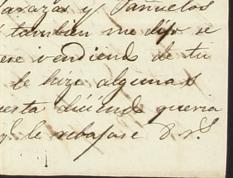 Zarazas y Pañuelos
tambien me dijo se
vendiendo de tu
le hize algunas
diciendo queria
q.e le rebajase 8 r.s